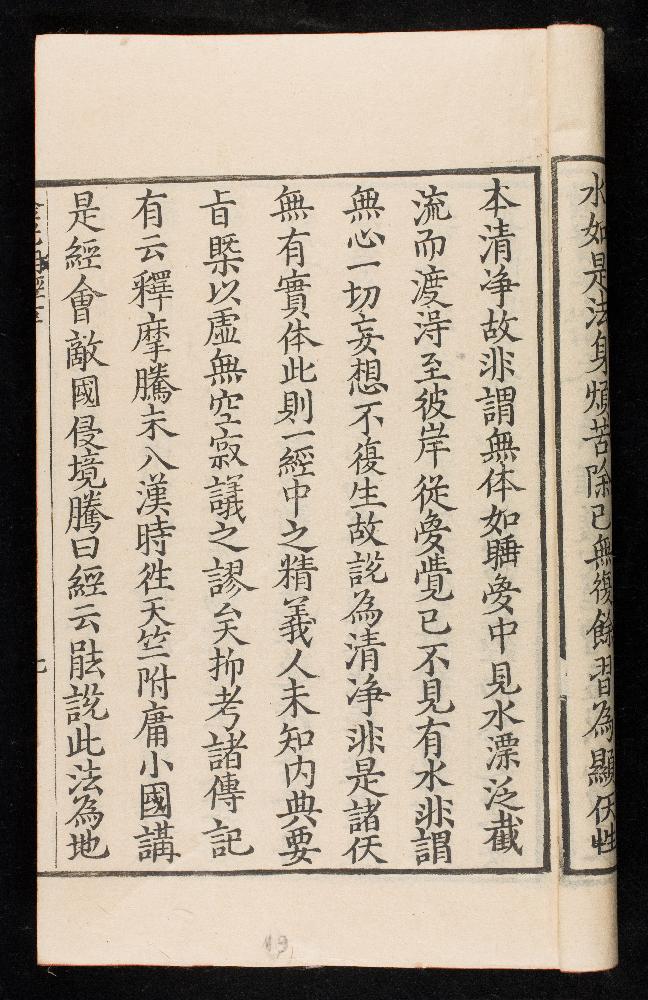 水如是法身煩苦除已無復餘習為顯仸性
本清净故非謂無体如睡夢中見水漂泛截
流而渡淂至彼岸従夢覺已不見有水非謂
無心一切妄想不復生故説為清净非是諸仸
無有實体此則一經中之精義人未知内典要
㫖槩以虛無空寂議之謬矣抑考諸傳記
有云釋摩騰未入漢時徃天竺附庸小國講
是經會敵國侵境騰曰經云䏻説此法為地